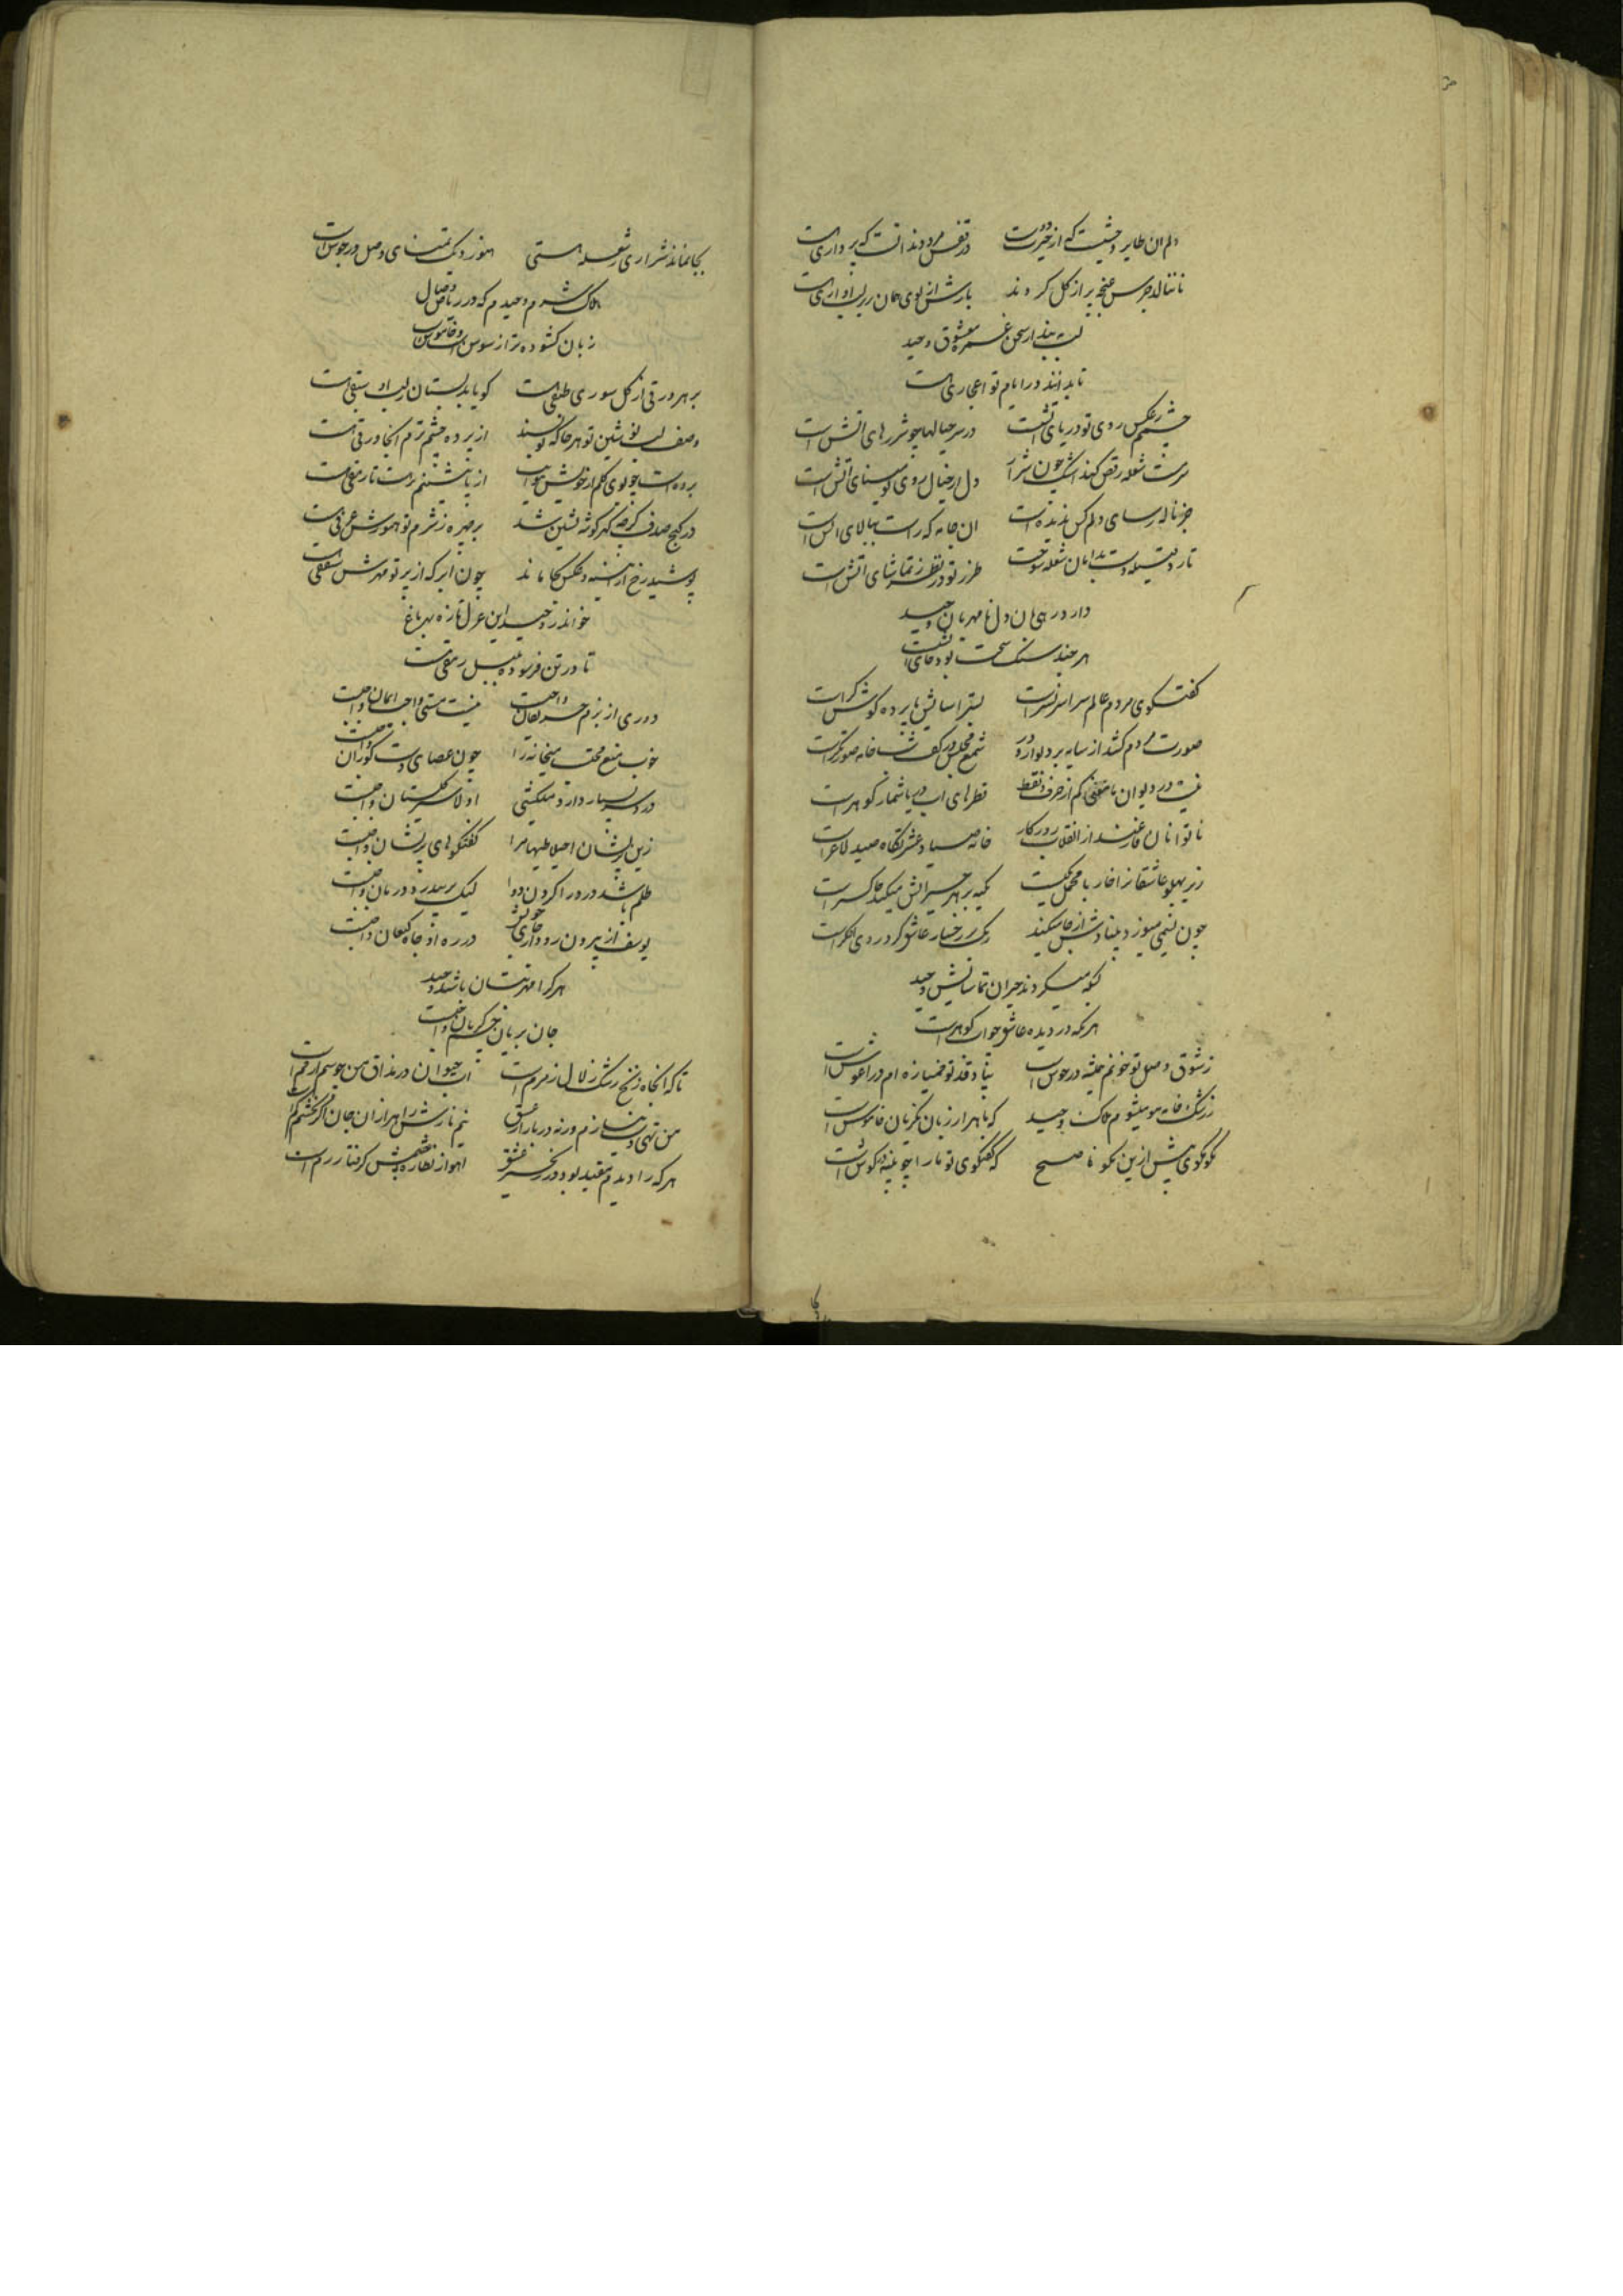 دلم ان طایر وحشیست که از حیرت در قفس مرد و ندانست که پروازی هست
تا ننالد جرس غنچه پر از گل کردند بازش از بوی همان زیر لب اوازی هست
لب مبند از سخن غمزه معشوق وحید
تا بدانند در ایام تو اعجازی هست
چشمم ز عکس روی تو دریای اتش است در سر خیالها چو شررهای اتش است
شعله رقص کند اشک چون شرار دل از خیال روی تو مینای اتش است
جز ناله رسای دلم کس ندیده است ان جامه که راست ببالای اتش است
تا رفتیله دست بدامان شعله سوخت طرز تو در نظر ز تماشای اتش است
دارد درمیان دل نامهربان وحید
هر چند سنگ سخت بود جای اتش است
گفتگوی مردم عالم سراسر نشتر است بستر اسایش ما پرده گوش کر است
صورت مردم کشد از سایه بر دیوار و در شمع مجلس در کف نقاش خانه صورتگر است
نیست در دیوان ما معنی کم از حرف و نقط قطرهای اب دریا شمار گوهر است
ناتوانان فارغند از انقلاب روزگار خانه صیاد عشرتگاه صید لاغر است
زیر پهلو عاشقانرا خار با مخمل یکیست تکیه بر هر چیز اتش میکند خاکستر است
چون نسیمی میوزد بنیادش از جا میکند رنگ بر رخسار عاشق گرد روی اخگر است
کوه میگردند حیران تماشایش وحید
هر که در دیده عاشق خواب گوهر است
ز شوق وصل تو خونم همیشه در جوش است بیاد قد تو خمیازه ام در اغوش است
ز رشک خامه مو میشوم هلاک وحید که با هزار زبان نکزبان خاموش است
مگو مگوی بیش ازین مگو ناصح که گفتگوی تو ما را چو پنبه در گوش است
بجا نماند شراری ز شعله هستی هنوز دیک تمنای وصل در جوش است
هلاک شرم وحیدم که در ریاض وصال
زبان گشوده تر از سوسن است و خاموش است
بر هر ورقی از گل سوری طبقی هست گویا بدبستان لب او سبقی هست
وصف لب نوشین تو هر جا که نویسند از پرده چشم ترم انجا ورقی هست
برده است چو بوی گلم از خویش هوایت از تابش شبنم رمت تا رمقی هست
در کنج صدف گرچه گهر گوشه نشین شد بر چهره ز شرم تو هنوزش عرقی هست
پوشید رخ از اینه و عکس بجا ماند چون ابر که از پرتو مهرش شفقی هست
خواند ز وحید این غزل تازه بهر باغ
تا در تن فرسوده بلبل رمقی هست
دوری از بزم حریفان واجبست نیست مستی واجب ایمان واجبست
خوب منع محتسب میخانه را چون عصای دست کوران واجبست
درد سر بسیار دارد میکشی اولا سیر گلستان واجبست
زین پریشان اختلاطیها مرا گفتگوهای پریشان واجبست
ظلم باشد درد را کردن دوا لیک بر بیدرد درمان واجبست
یوسف از بیرون رود از جای خویش در ره او چاه کنعان واجبست
هر کرا مهر بتان باشد وحید
جان بریان چشم گریان واجبست
تا که ان چاه زنخ رشک زلال زمزم است اب حیوان در مذاق من چو سم ارقم است
من تهی دستم بنیازم ورنه در بازار عشق نیم نازش را هزاران جان اگر بخشم کم است
هر که را دیدم مقید بود در زنجیر عشق اهو از نظاره چشمش گرفتار رم است